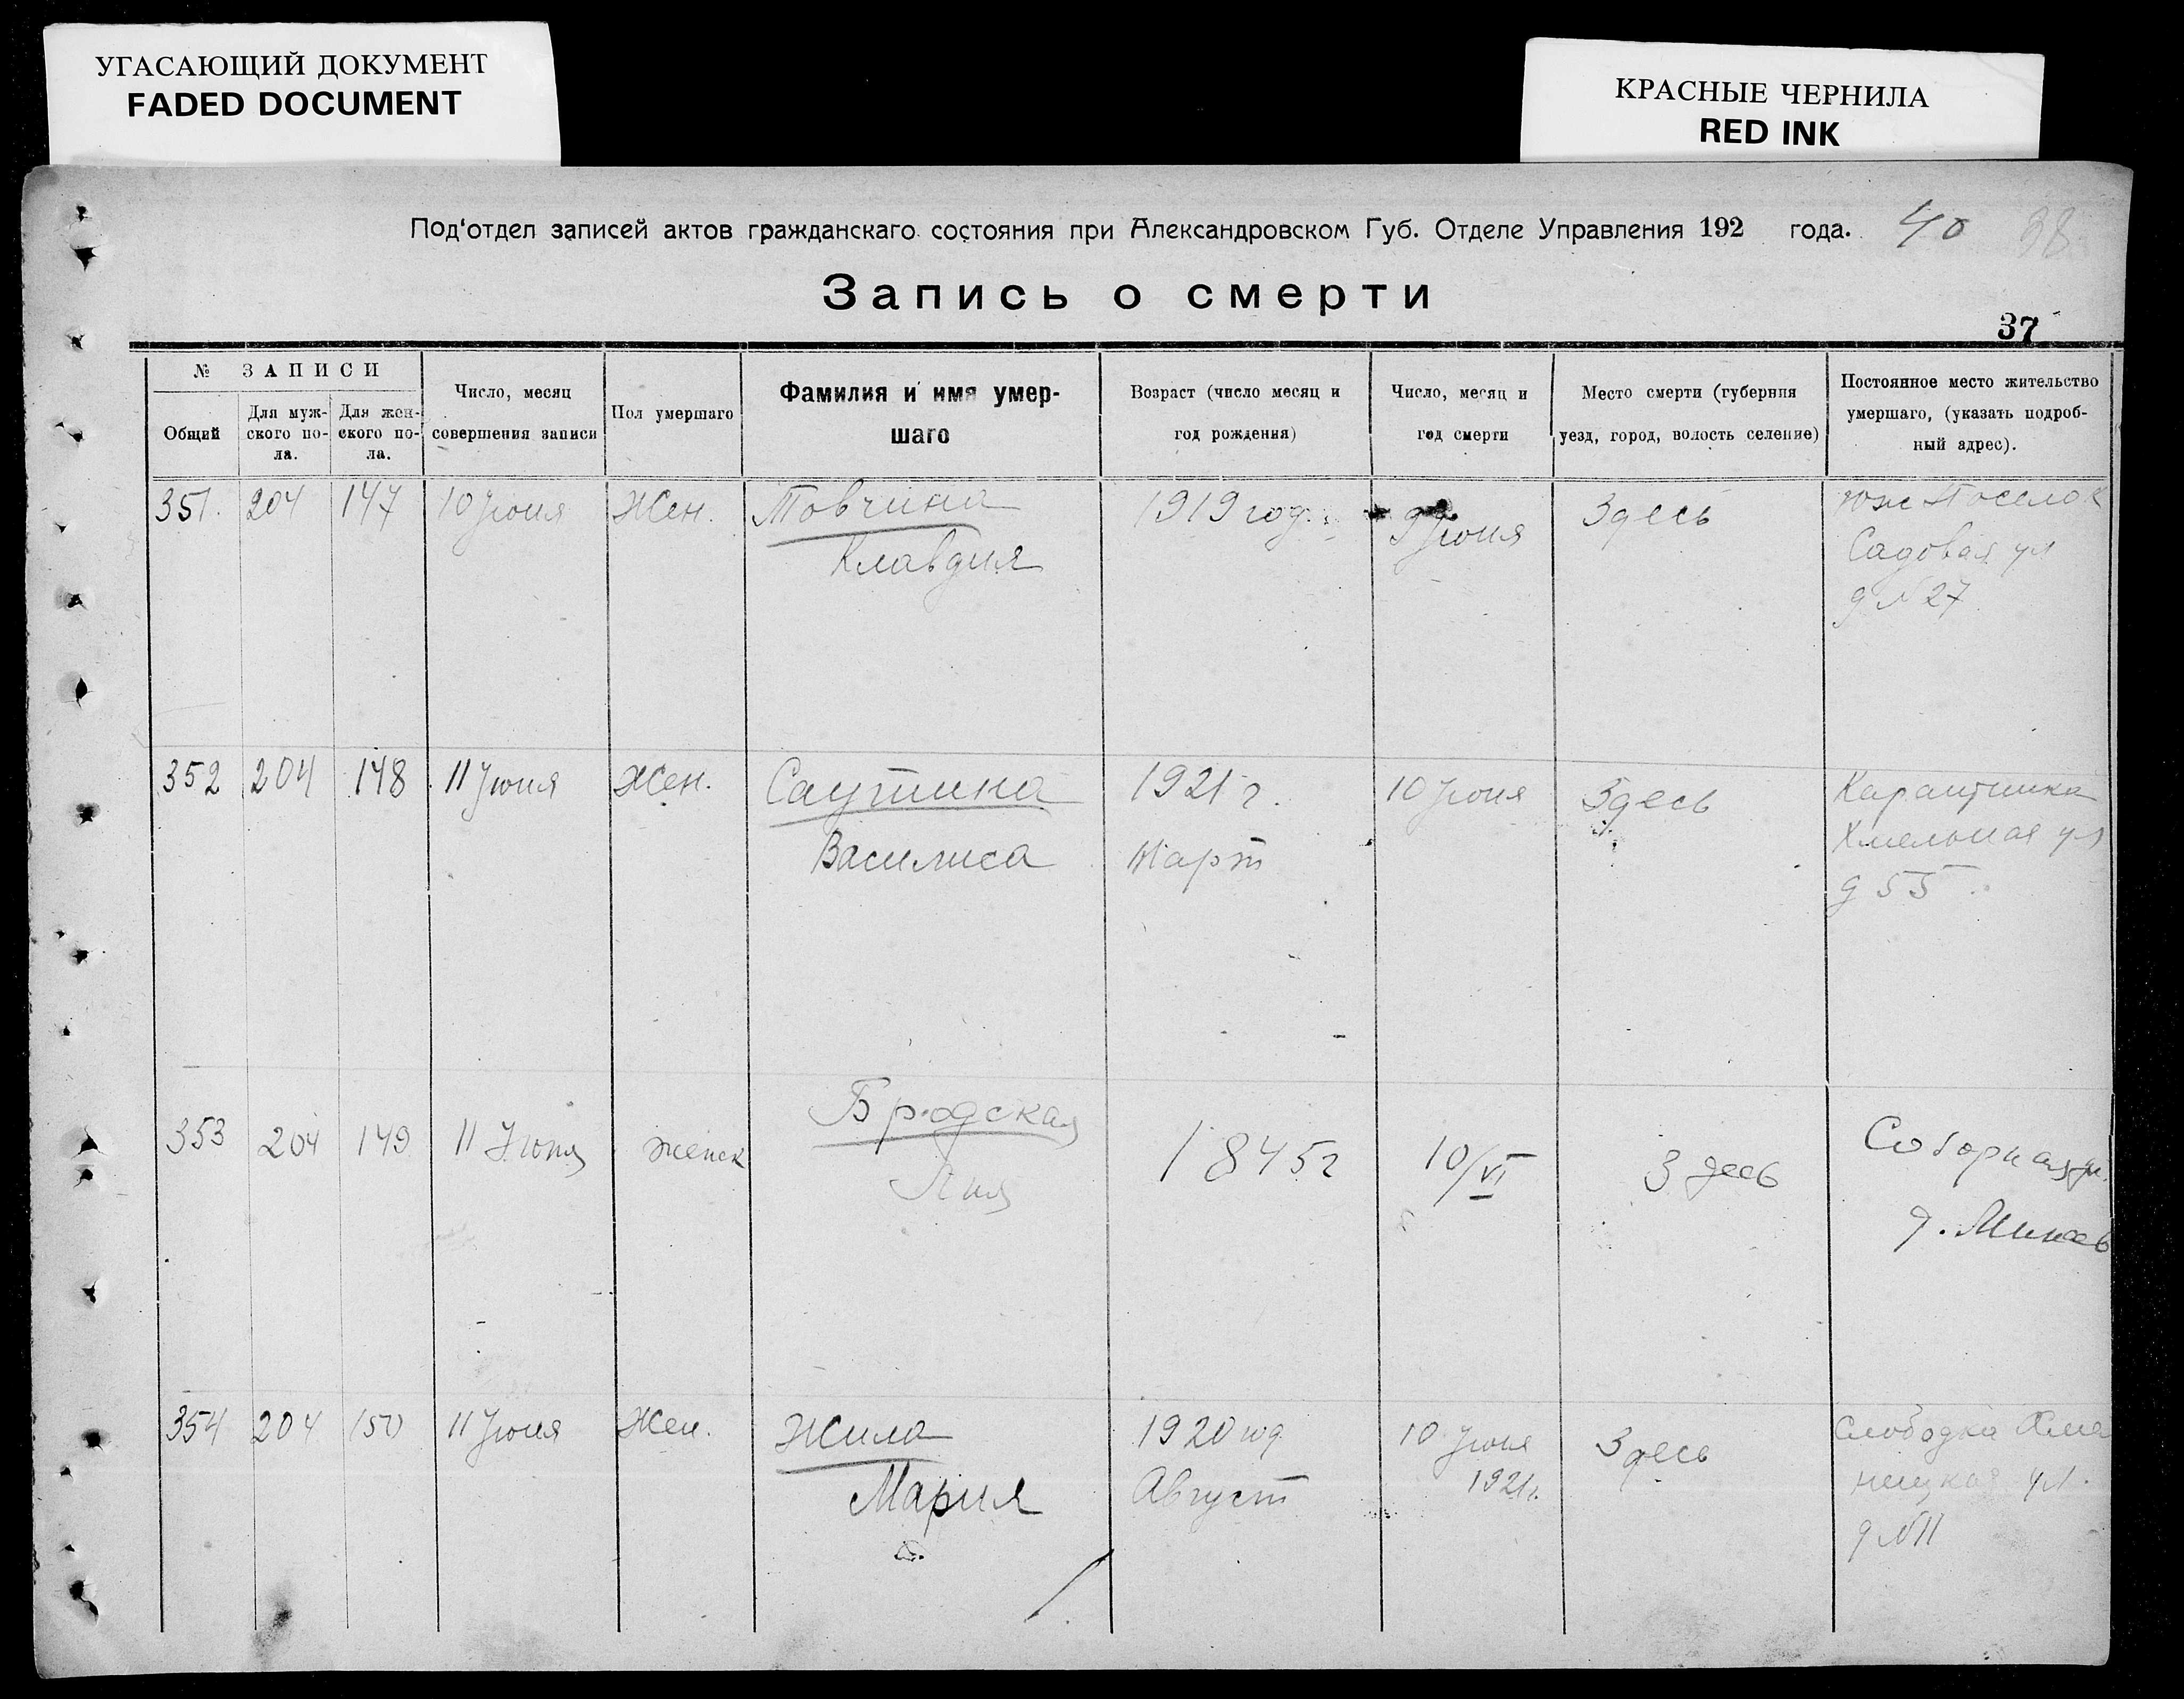 УГАСАЮЩИЙ ДОКУМЕНТ
FADED DOCUMENT
КРАСНЫЕ ЧЕРНИЛА
RED INK
Под‘отдел записей актов гражданскаго состояния при Александровском Губ. Отделе Управления 192 года. 40 38
Запись о смерти
37
№ ЗАПИСИ
Общий
Для муж-
ского по-
ла.
Для жен-
ского по-
ла.
Число, месяц
совершения записи
Пол умершаго
Фамилия и имя умер-
шаго
Возраст (число месяц и
год рождения)
Число, месяц и
год смерти
Место смерти (губерния
уезд, город, волость селение)
Постоянное место жительство
умершаго, (указать подроб-
ный адрес).
351. 204 147 10 Июня Жен. Товчина 1919 год. 9 Июня Здесь Юж Поселок
Клавдия Садовая ул
д №27
352 204 148 11 Июня Жен. Саутина 1921 г. 10 Июня Здесь Карантинка
Василиса Март Хмельная ул
д 55
353 204 149 11 Июня женск Бродская 1845 г 10/VI Здесь Соборная ул.
д. Минаев
354 204 150 11 Июня Жен. Жила 1920 год 10 Июня Здесь Слободка
Мария Август 1921 г. ул.
д №11